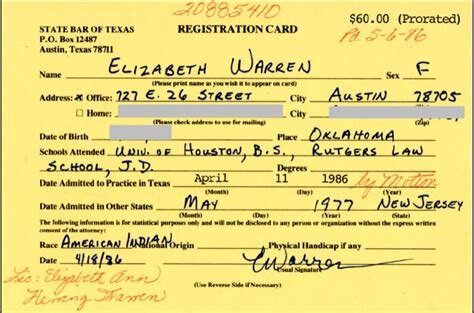 20885410
STATE BAR OF TEXAS REGISTRATION CARD $60.00 (Prorated)
P.O. Box 12487 Pd. 5-6-86
Austin, Texas 78711
Name ELIZABETH WARREN Sex F
(Please print name as you wish it to appear on card)
Address: x Office: 727 E. 26 STREET City AUSTIN 78705
(Zip)
Home: City
(Please check address to use for mailing) (Zip)
Date of Birth Place OKLAHOMA
Schools Attended UNIV. OF HOUSTON, B.S., RUTGERS LAW
SCHOOL, J.D.
Date Admitted to Practice in Texas April 11 1986 by Motion
(Month) (Day) (Year)
Date Admitted in Other States MAY 1977 NEW JERSEY
(Month) (Day) (Year) (State)
The following information is for statistical purposes only and will not be disclosed to any person or organization without the express written
consent of the attorney:
Race AMERICAN INDIAN National Origin Physical Handicap if any
Date 4/18/86 EWarren
Usual Signature
Lic: Elizabeth Ann (Use Reverse Side if Necessary)
Herring Warren